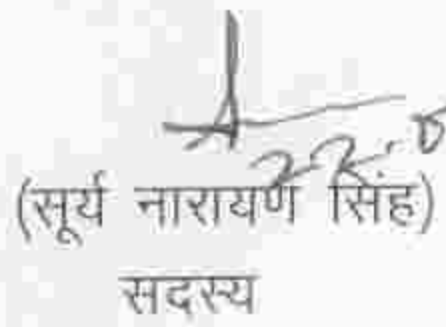 (सूर्य नारायण सिंह)
सदस्य